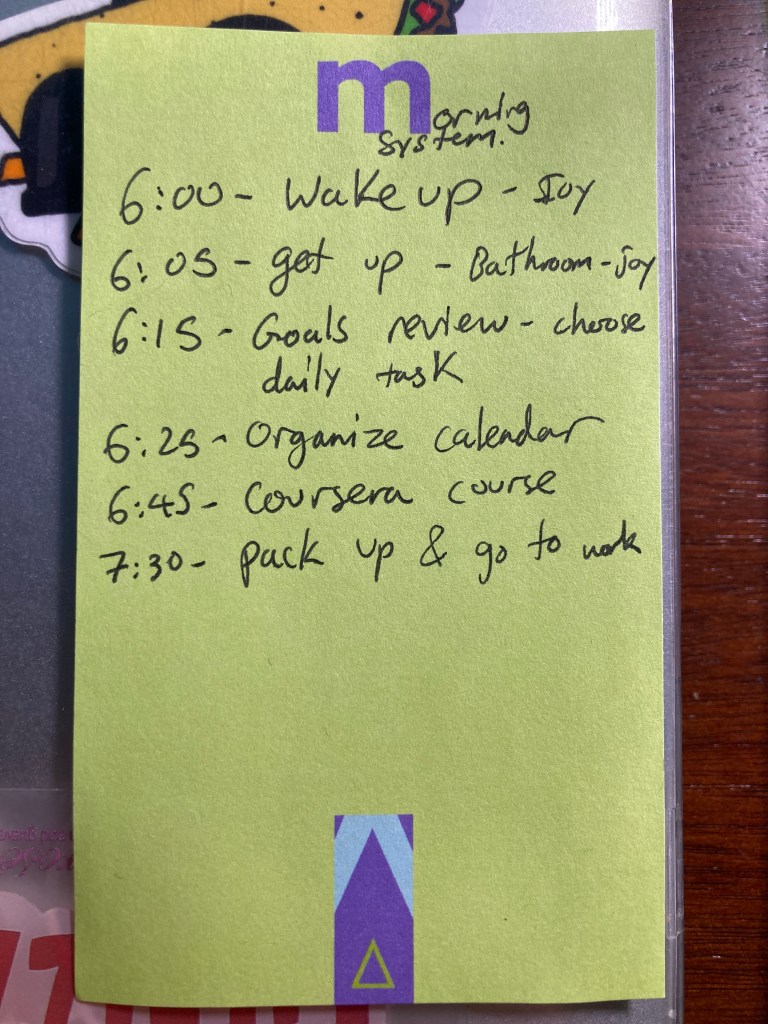 morning
system.
6:00 - Wake up - Joy
6:05 - get up - Bathroom - joy
6:15 - Goals review - choose
daily task
6:25 - Organize calendar
6:45 - Coursera course
7:30 - pack up & go to work